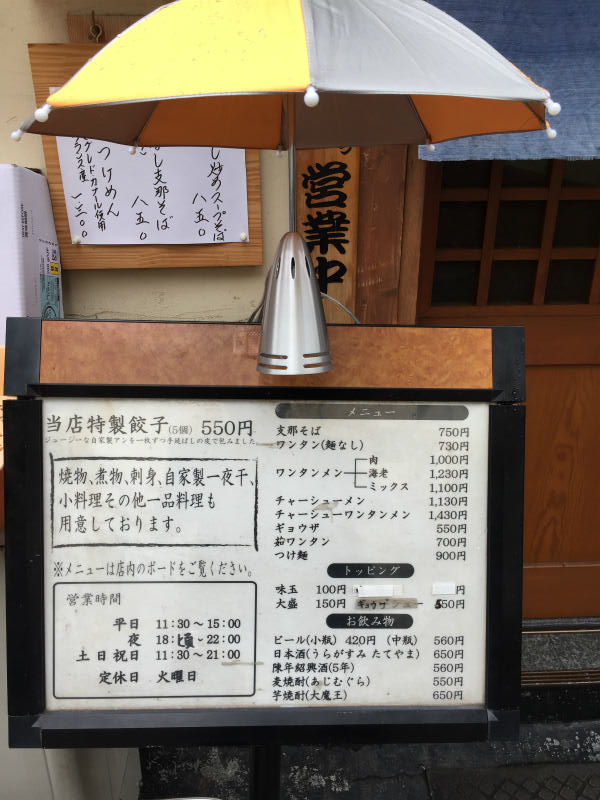 し炒めスープそば 八五〇
し支那そば 八五〇
つけめん
使用
一三〇〇
営業中
当店特製餃子(5個) 550円
ジューシーな自家製アンを一枚ずつ手延ばしの皮で包みました
焼物、煮物、刺身、自家製一夜干、
小料理その他一品料理も
用意しております。
※メニューは店内のボードをご覧ください。
営業時間
平日 11:30〜15:00
夜 18:頃〜22:00
土日祝日 11:30〜21:00
定休日 火曜日
メニュー
支那そば 750円
ワンタン(麺なし) 730円
ワンタンメン 肉 1,000円
海老 1,230円
ミックス 1,100円
チャーシューメン 1,130円
チャーシューワンタンメン 1,430円
ギョウザ 550円
茹ワンタン 700円
つけ麺 900円
トッピング
味玉 100円 円
大盛 150円 550円
お飲み物
ビール(小瓶) 420円 (中瓶) 560円
日本酒(うらがすみ たてやま) 650円
陳年紹興酒(5年) 560円
麦焼酎(あじむぐら) 550円
芋焼酎(大魔王) 650円